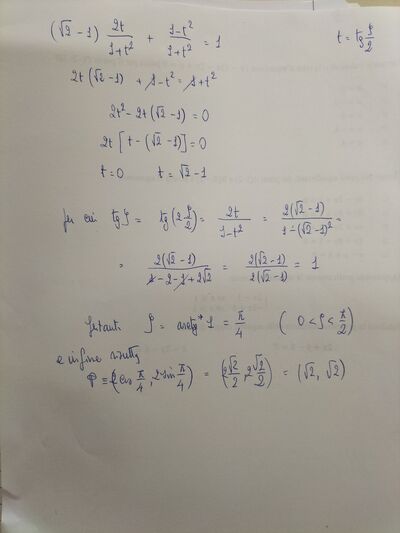 (√2 - 1) 2t/(1+t²) + (1-t²)/(1+t²) = 1     t = tg ρ/2
2t (√2 - 1) + 1 - t² = 1 + t²
2t² - 2t (√2 - 1) = 0
2t [t - (√2 - 1)] = 0
t = 0     t = √2 - 1
per cui tg ρ = tg (2 ρ/2) = 2t/(1-t²) = 2(√2 - 1)/(1-(√2 - 1)²) =
= 2(√2 - 1)/(1 - 2 - 1 + 2√2) = 2(√2 - 1)/2(√2 - 1) = 1
Pertanto ρ = arctg 1 = π/4     (0 < ρ < π/2)
e infine risulta
P ≡ (2 cos π/4, 2 sin π/4) = (2 √2/2, 2 √2/2) = (√2, √2)